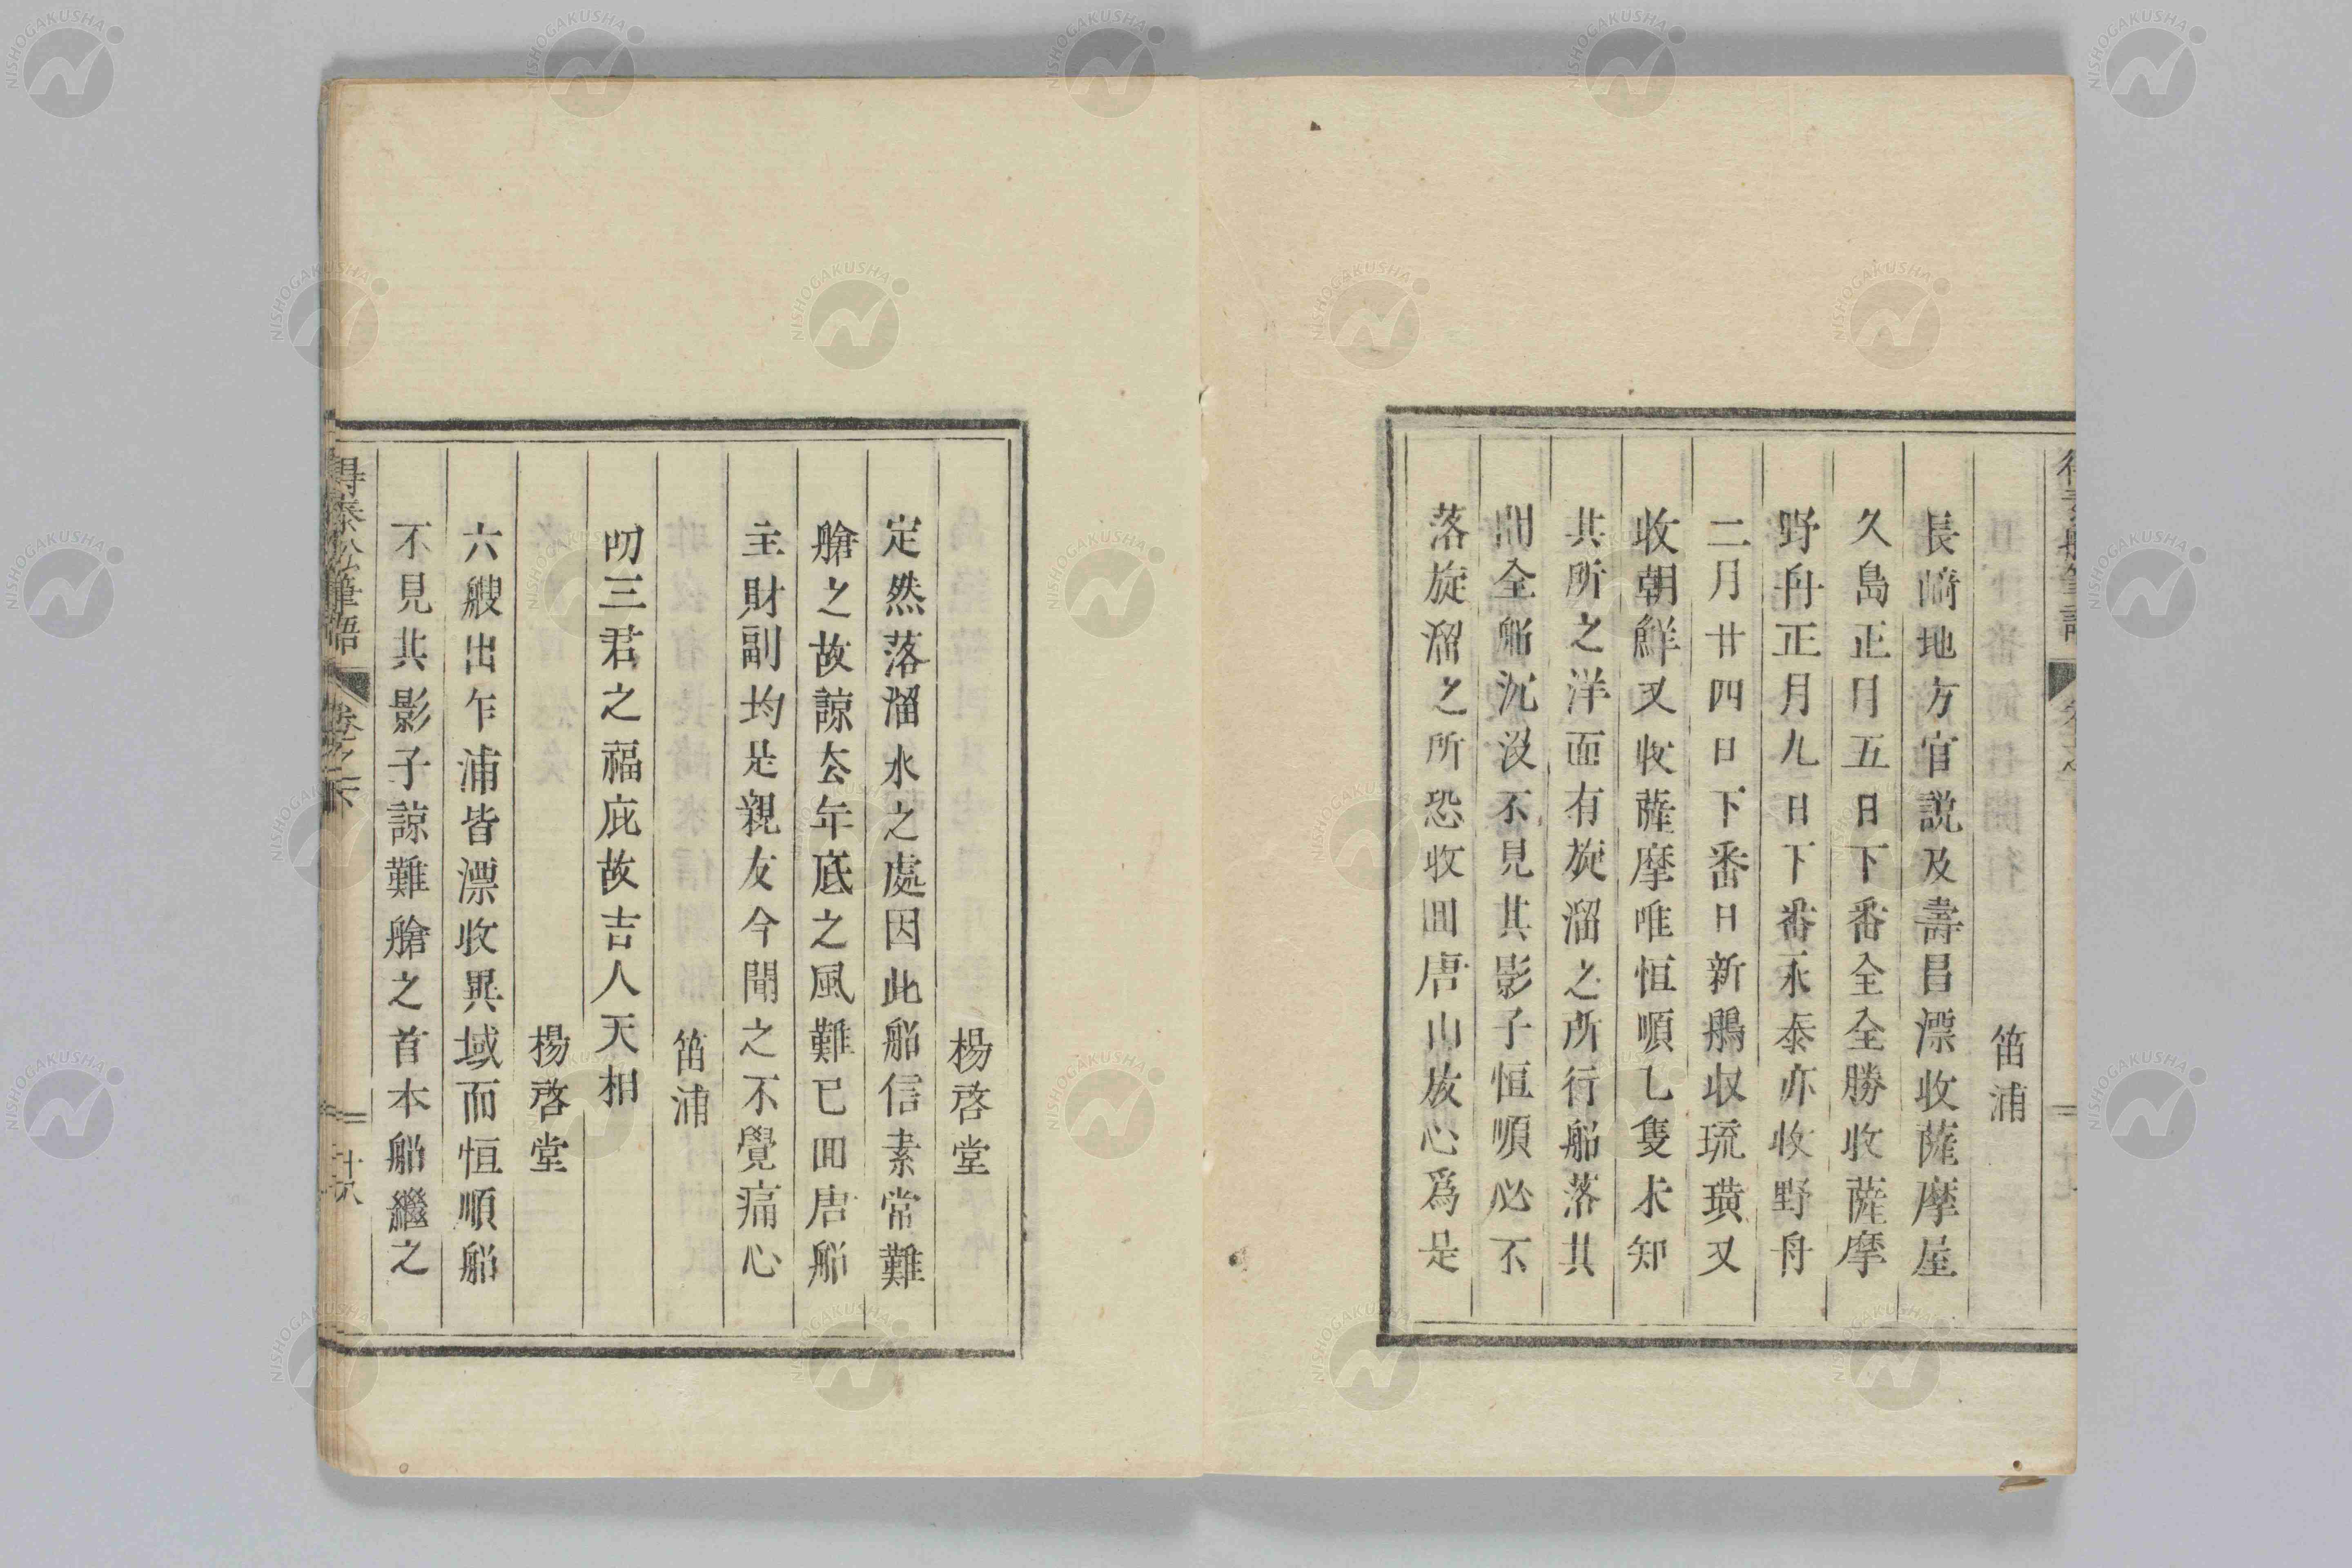 笛浦
長﨑地方官説及壽昌漂收薩摩屋
久島正月五日下番全全勝收薩摩
野舟正月九日下番永泰亦收野舟
二月廿四日下番日新鵬収琉璜又
收朝鮮又收薩摩唯恒順乚隻未知
其所之洋面有旋溜之所行船落其
間全船沉没不見其影子恒順必不
落旋溜之所恐收囬唐山放心爲是
楊啓堂
定然落溜水之處因此船信素常難
艙之故諒去年底之風難已囬唐船
主財副均是親友今聞之不覺痛心
笛浦
叨三君之福庇故吉人天相
楊啓堂
六艘出乍浦皆漂收異域而恒順船
不見其影子諒難艙之首本船繼之
得泰船筆語 卷之下 廿八